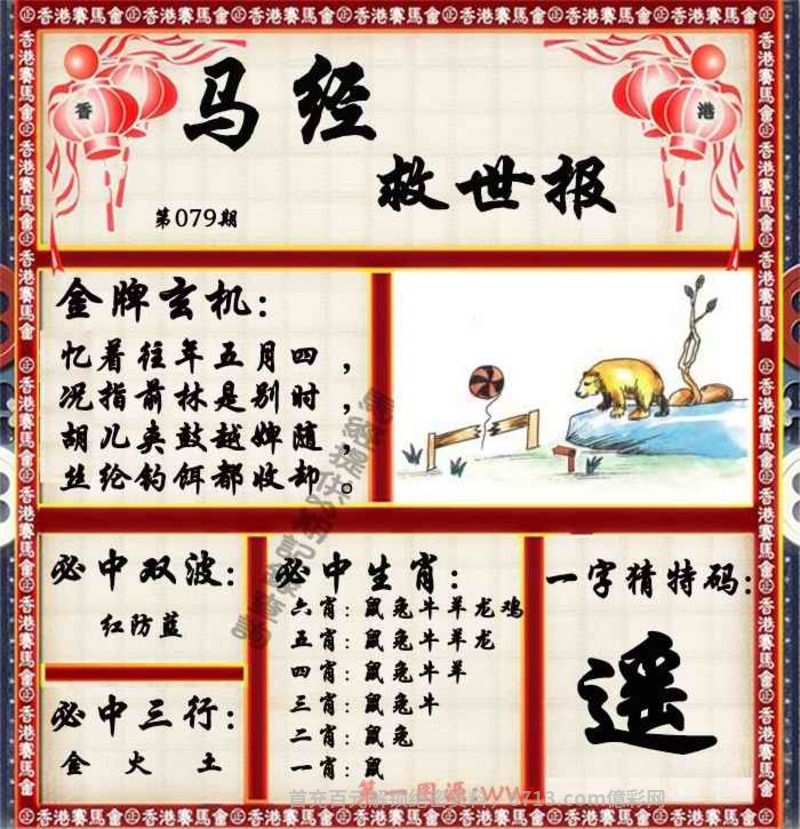 ㊣香港賽馬會㊣香港賽馬會㊣香港賽馬會㊣香港賽馬會㊣香港賽馬會㊣香港賽馬會㊣香港賽馬會
香
港
马经
救世报
第079期
金牌玄机:
忆着往年五月四，
况指前林是别时，
胡儿夹鼓越婢随，
丝纶钓饵都收却。
必中双波:
红防蓝
必中三行:
金 火 土
必中生肖:
六肖: 鼠兔牛羊龙鸡
五肖: 鼠兔牛羊龙
四肖: 鼠兔牛羊
三肖: 鼠兔牛
二肖: 鼠兔
一肖: 鼠
一字猜特码:
遥